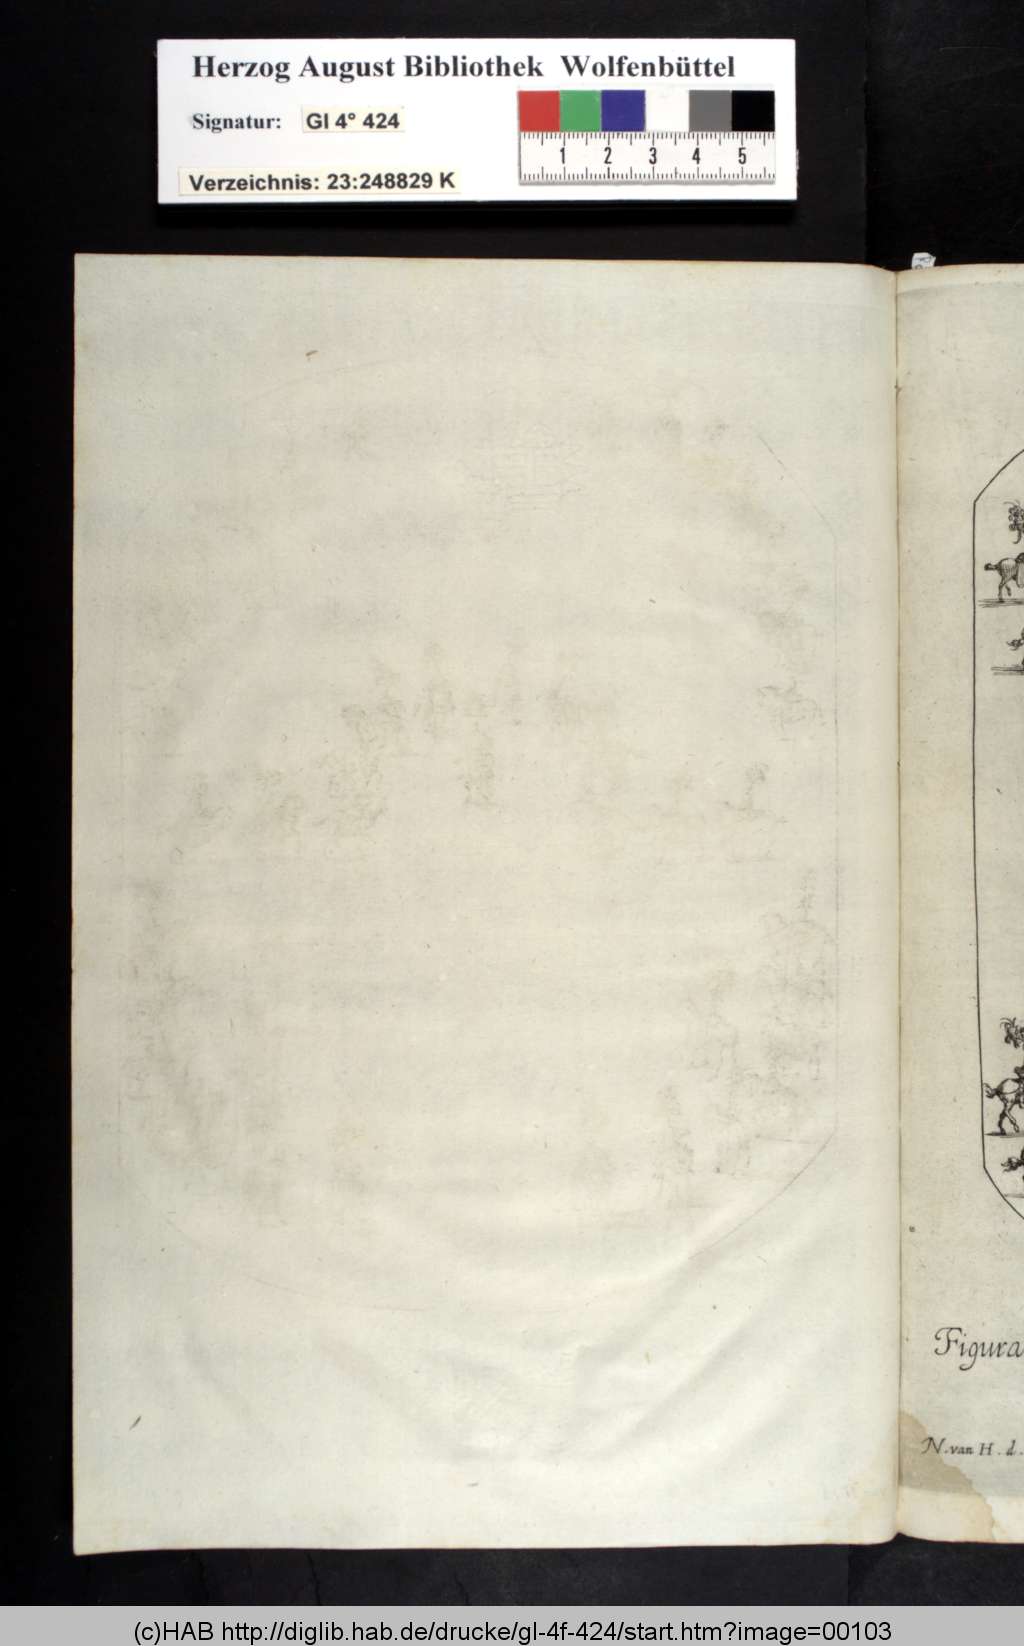 Herzog August Bibliothek Wolfenbüttel
Signatur: Gl 4° 424
1 2 3 4 5
Verzeichnis: 23:248829 K
Figura
N. van H. d.
(c)HAB http://diglib.hab.de/drucke/gl-4f-424/start.htm?image=00103